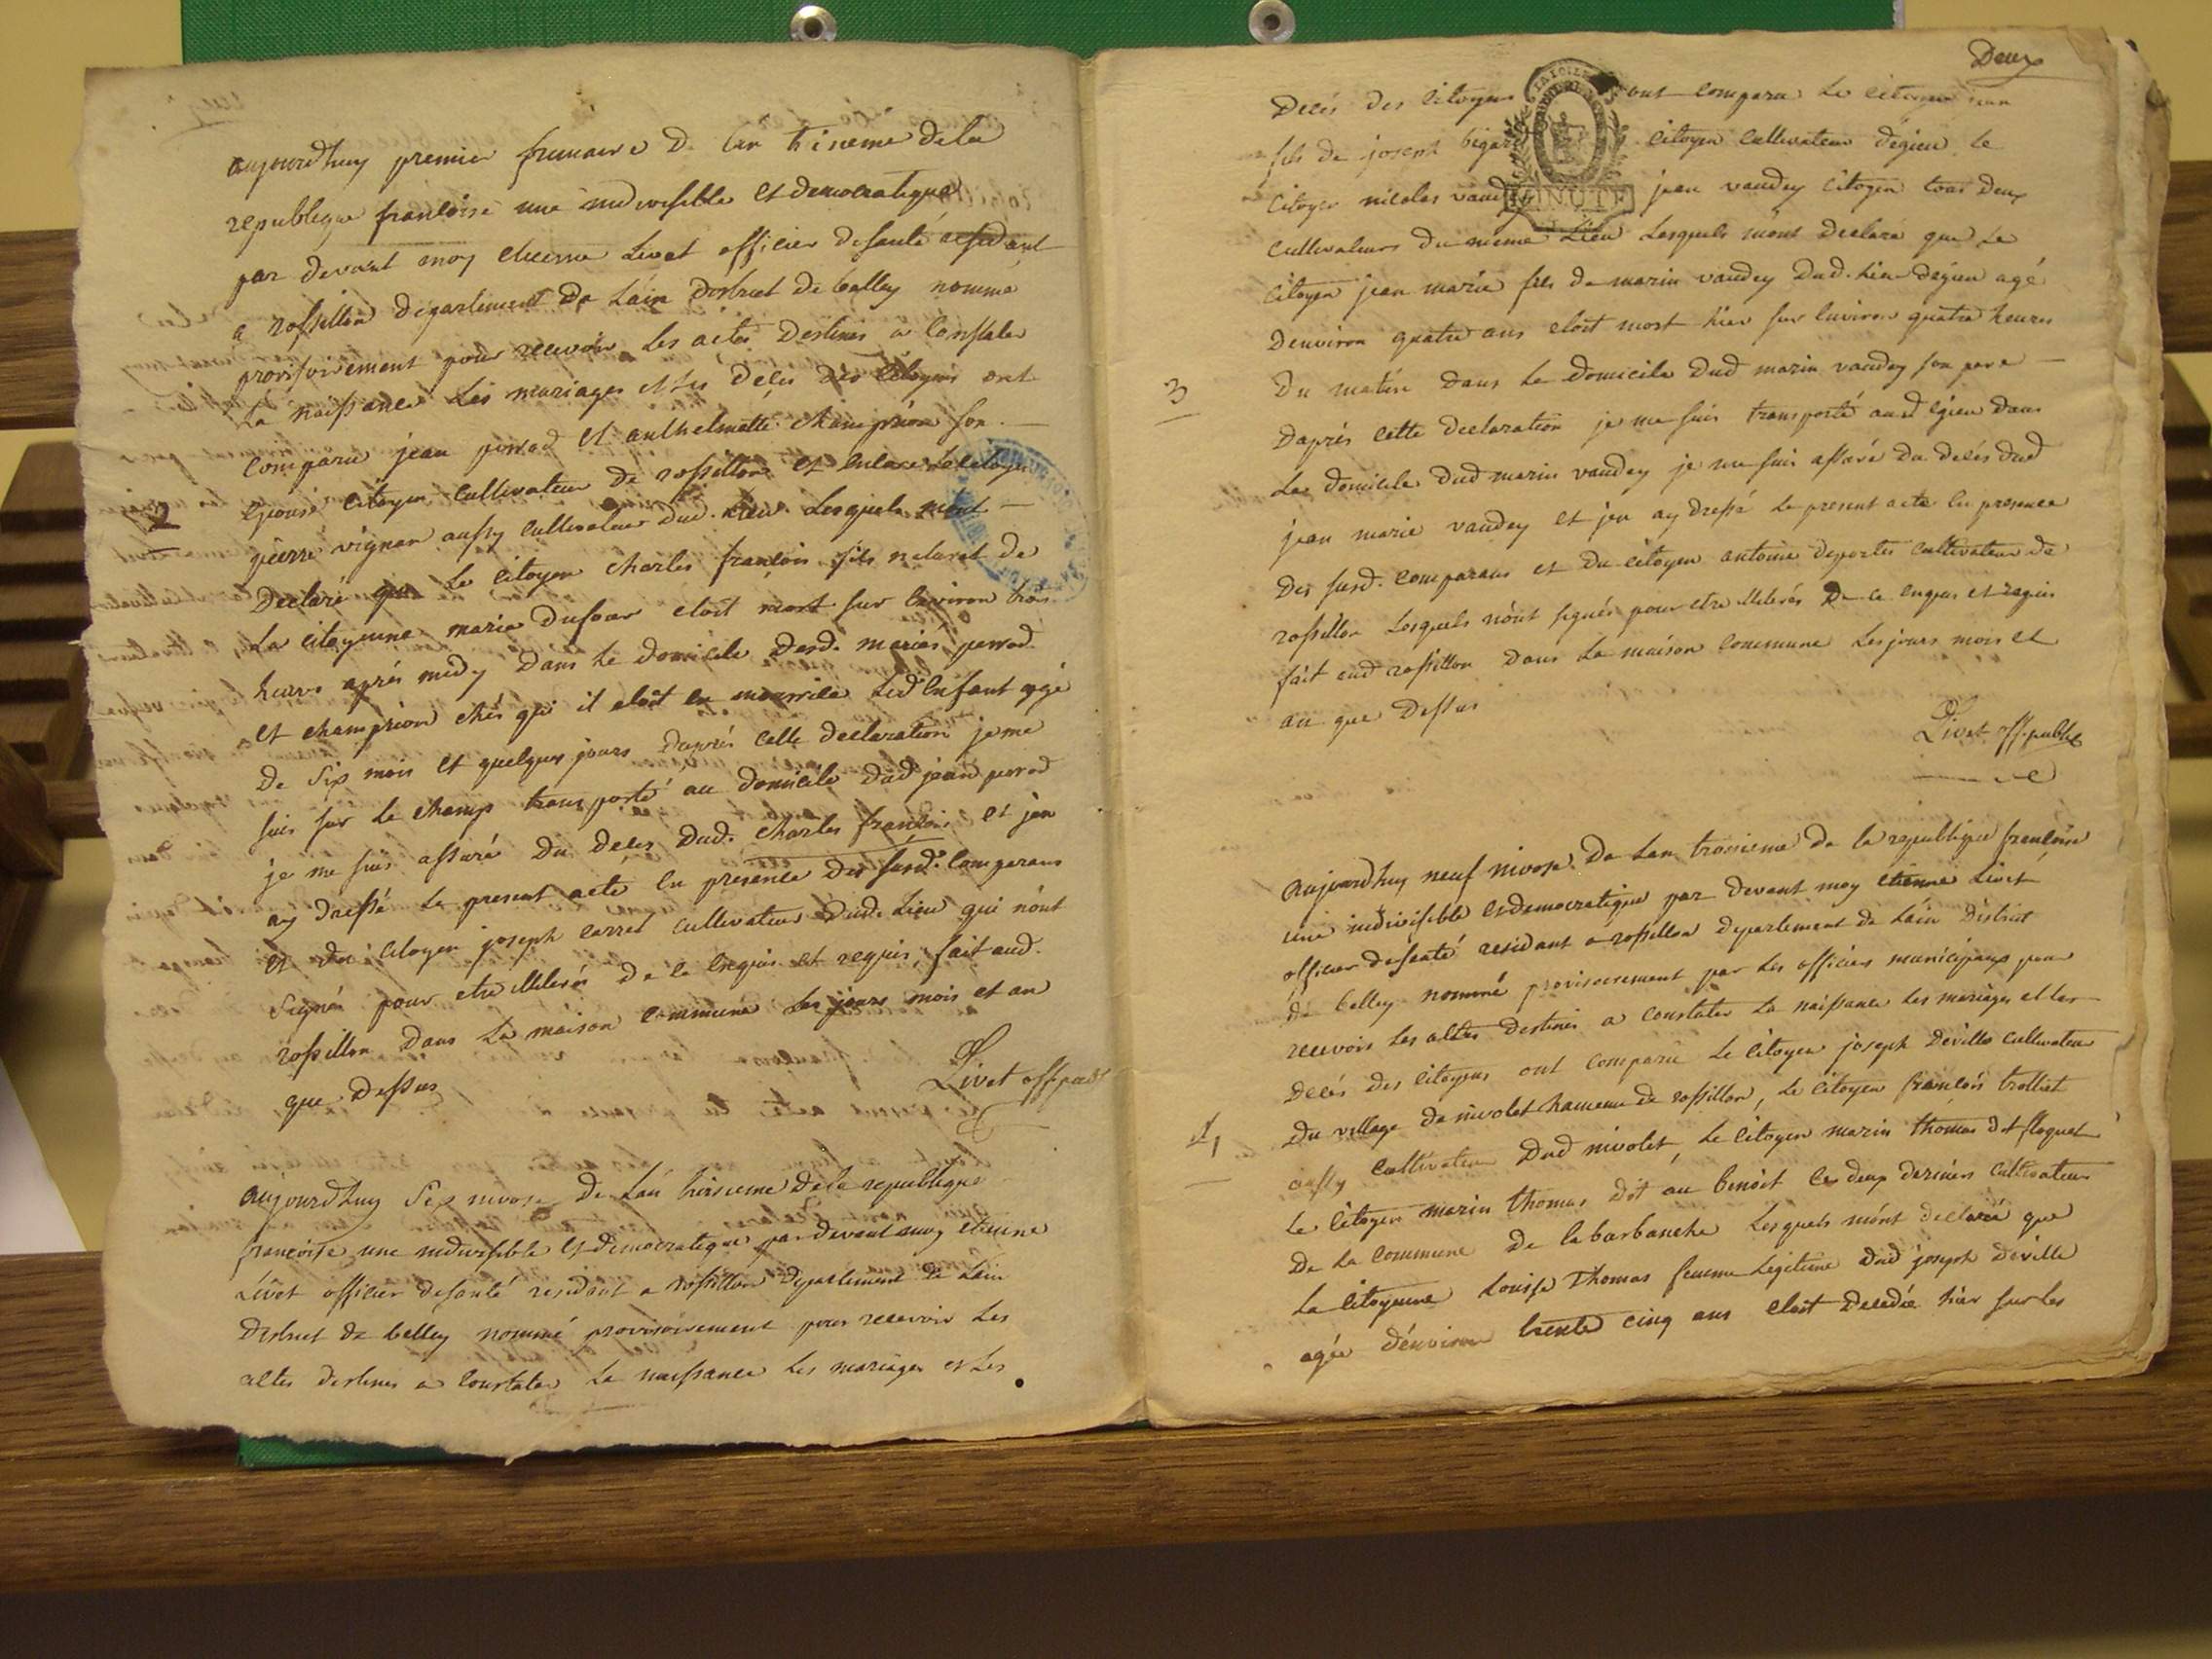 aujourdhuy premier frimaire D lan troisieme de la
republique françoise une indivisible et democratique
par devant moy etienne Livet officier desanté residant
a rossillon departement De Lain district De belley nommé
provisoirement pour recevoir Les actes Destinés a Constater
La naissance Les mariages et Les Décés des Citoyens ont
Comparu jean perrod et anthelmette Champion son
2
Epouse Citoyen Cultivateur De rossillon et encore Le Citoyen
pierre vignan aussy Cultivateur dud. Lieu Lesquels m'ont
Declaré que Le Citoyen Charles françois fils naturel de
La Citoyenne marie Dufour etoit mort sur Lenviron trois
heures aprés midy Dans Le Domicile Desd. mariés perrod
et Champion chés qui il etoit en nourrice Led. Enfant agé
De Six mois et quelques jours Daprés Cette Declaration je me
suis sur Le Champ transporté au Domicile Dud jean perrod
je me suis assuré Du Deces Dud. Charles françois et jen
ay Dressé Le present acte En presence Des susd. Comparans
et du Citoyen joseph Carret Cultivateur Dud. Lieu qui nont
Signés pour etre illiterés De Ce Enquis et requis, fait aud.
rossillon Dans La maison Commune Les jours mois et an
que Dessus
Livet off. public
aujourdhuy Six nivose De Lan troisieme De la republique
françoise une indivisible et democratique par devant moy etienne
Livet officier desanté residant a rossillon Departement De Lain
District De belley nommé provisoirement pour recevoir Les
actes destines a Constater La naissance Les mariages et Les
Deux
Décés Des Citoyens ont Comparu Le Citoyen jean
fils De joseph bigard Citoyen Cultivateur Dégieu Le
Citoyen nicolas vaudey jean vaudey Citoyen tous Deux
Cultivateurs Du meme Lieu Lesquels m'ont Declaré que Le
Citoyen jean marie fils De marin vaudey Dud. Lieu Dégieu agé
Denviron quatre ans etoit mort hier sur Lenviron quatre heures
3
Du matin Dans Le Domicile Dud marin vaudey son pere
Daprés Cette Declaration je me suis transporté aud Egieu Dans
Le domicile Dud marin vaudey je me suis assuré Du Decés Dud
jean marie vaudey et jen ay Dressé Le present acte En presence
Des susd. Comparans et Du Citoyen antoine Deportes Cultivateur De
rossillon Lesquels n'ont signés pour etre illiterés De Ce Enquis et requis
fait aud rossillon Dans La maison Commune Les jours mois et
an que Dessus
Livet off. public
Aujourdhuy neuf nivose De Lan troisieme De la republique françoise
une indivisible et democratique par devant moy etienne Livet
officier desanté residant a rossillon departement De Lain District
De belley nommé provisoirement par Les officiers municipaux pour
recevoir Les actes Destinés a Constater La naissance Les mariages et les
Décés Des Citoyens ont Comparu Le Citoyen joseph Deville Cultivateur
4
Du village De nivolet hameau De rossillon, Le Citoyen françois trolliet
aussy Cultivateur Dud nivolet, Le Citoyen marin thomas dit floquet
Le Citoyen marin thomas Dit au benoit Les deux Derniers Cultivateurs
De La Commune De la barbanche Lesquels m'ont declaré que
La Citoyenne Louise Thomas femme Legitime Dud joseph Deville
agée Denviron trente cinq ans etoit Decedée hier sur les
MINUTE